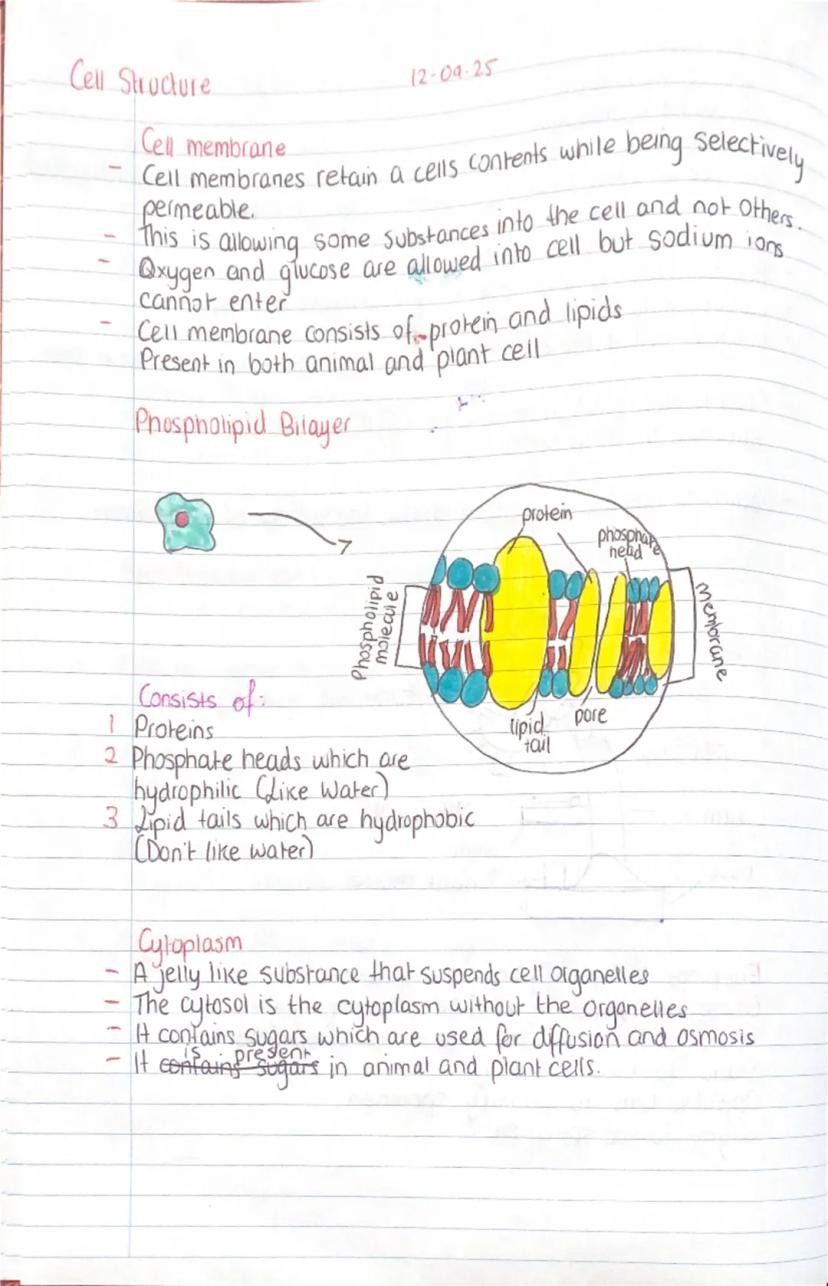 Cell Structure
12-09-25
Cell membrane
- Cell membranes retain a cells contents while being selectively
permeable.
- This is allowing some substances into the cell and not others.
- Oxygen and glucose are allowed into cell but sodium ions
cannot enter
- Cell membrane consists of protein and lipids
Present in both animal and plant cell
Phospholipid Bilayer
protein
phosphate
head
Phospholipid
molecule
Membrane
lipid
tail
pore
Consists of:
1 Proteins
2 Phosphate heads which are
hydrophilic (Like Water)
3 Lipid tails which are hydrophobic
(Don't like water)
Cytoplasm
- A jelly like substance that suspends cell organelles
- The cytosol is the cytoplasm without the organelles
- It contains sugars which are used for diffusion and osmosis
is present
- It contains sugars in animal and plant cells.